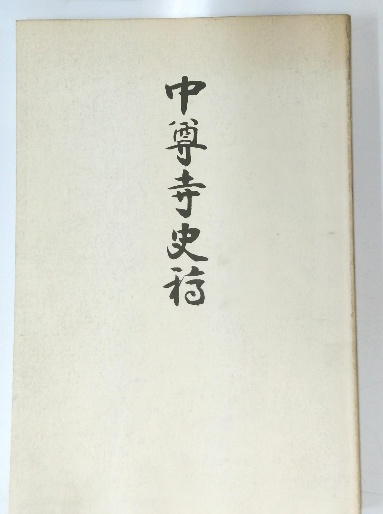 中尊寺史稿